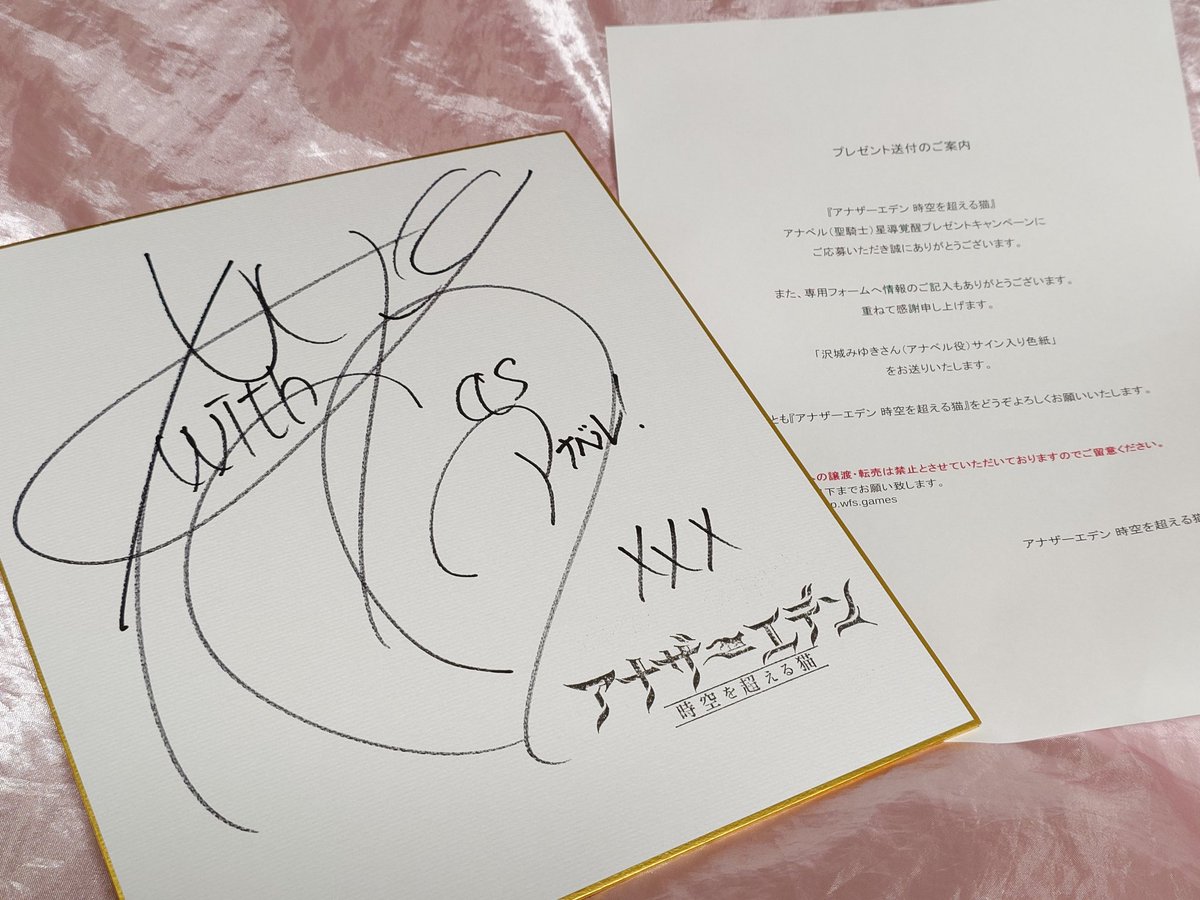 with
as
アナベル.
XXX
アナザーエデン
時空を超える猫
プレゼント送付のご案内
『アナザーエデン 時空を超える猫』
アナベル（聖騎士）星導覚醒プレゼントキャンペーンに
ご応募いただき誠にありがとうございます。
また、専用フォームへ情報のご記入もありがとうございます。
重ねて感謝申し上げます。
「沢城みゆきさん（アナベル役）サイン入り色紙」
をお送りいたします。
とも『アナザーエデン 時空を超える猫』をどうぞよろしくお願いいたします。
の譲渡・転売は禁止とさせていただいておりますのでご留意ください。
下までお願い致します。
p.wfs.games
アナザーエデン 時空を超える猫